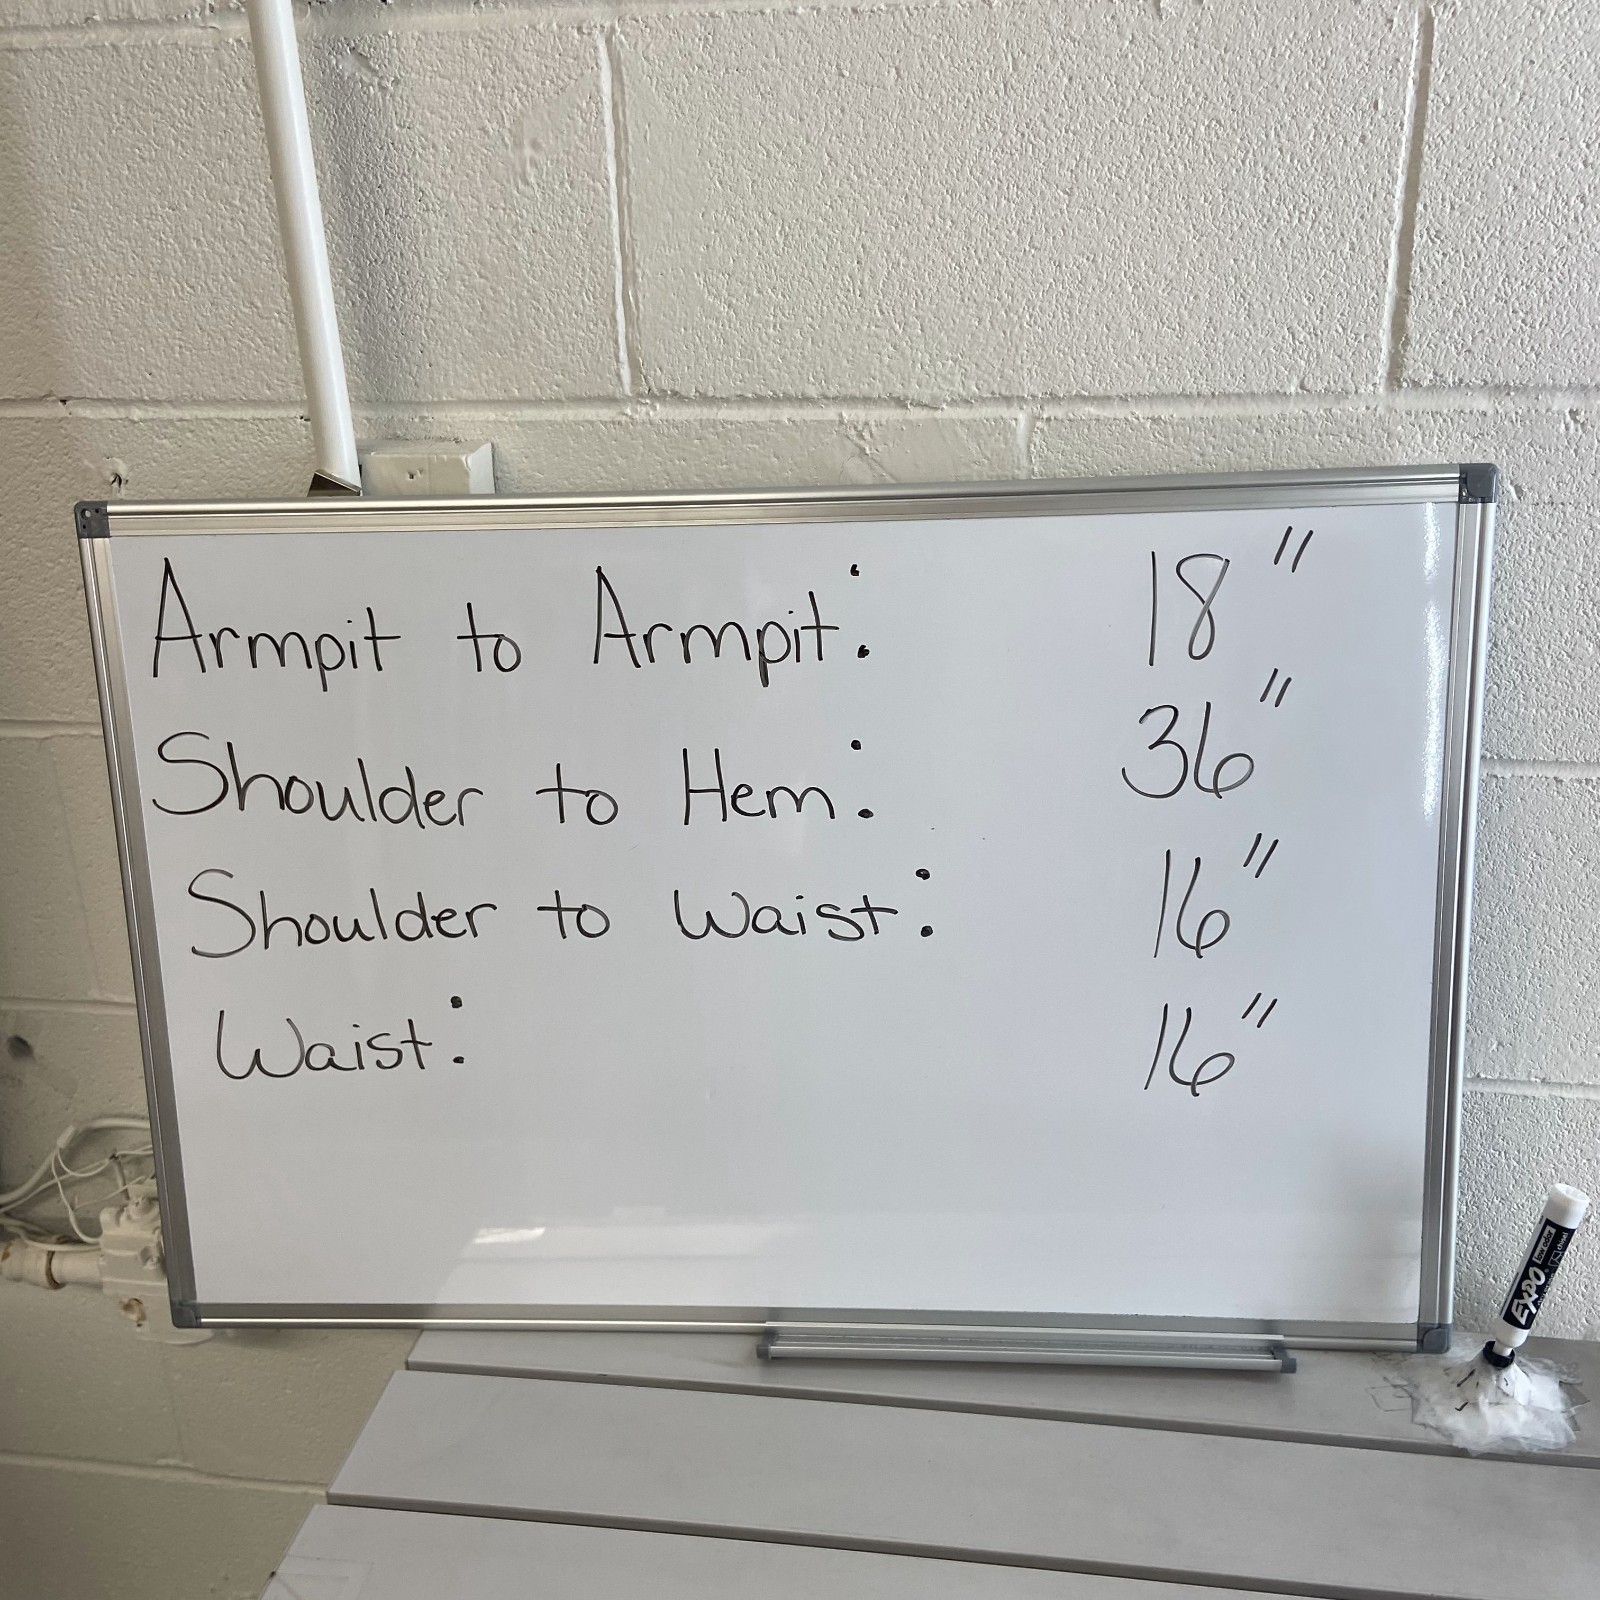 Armpit to Armpit: 18"
Shoulder to Hem: 36"
Shoulder to Waist: 16"
Waist: 16"
EXPO
low odor
chisel